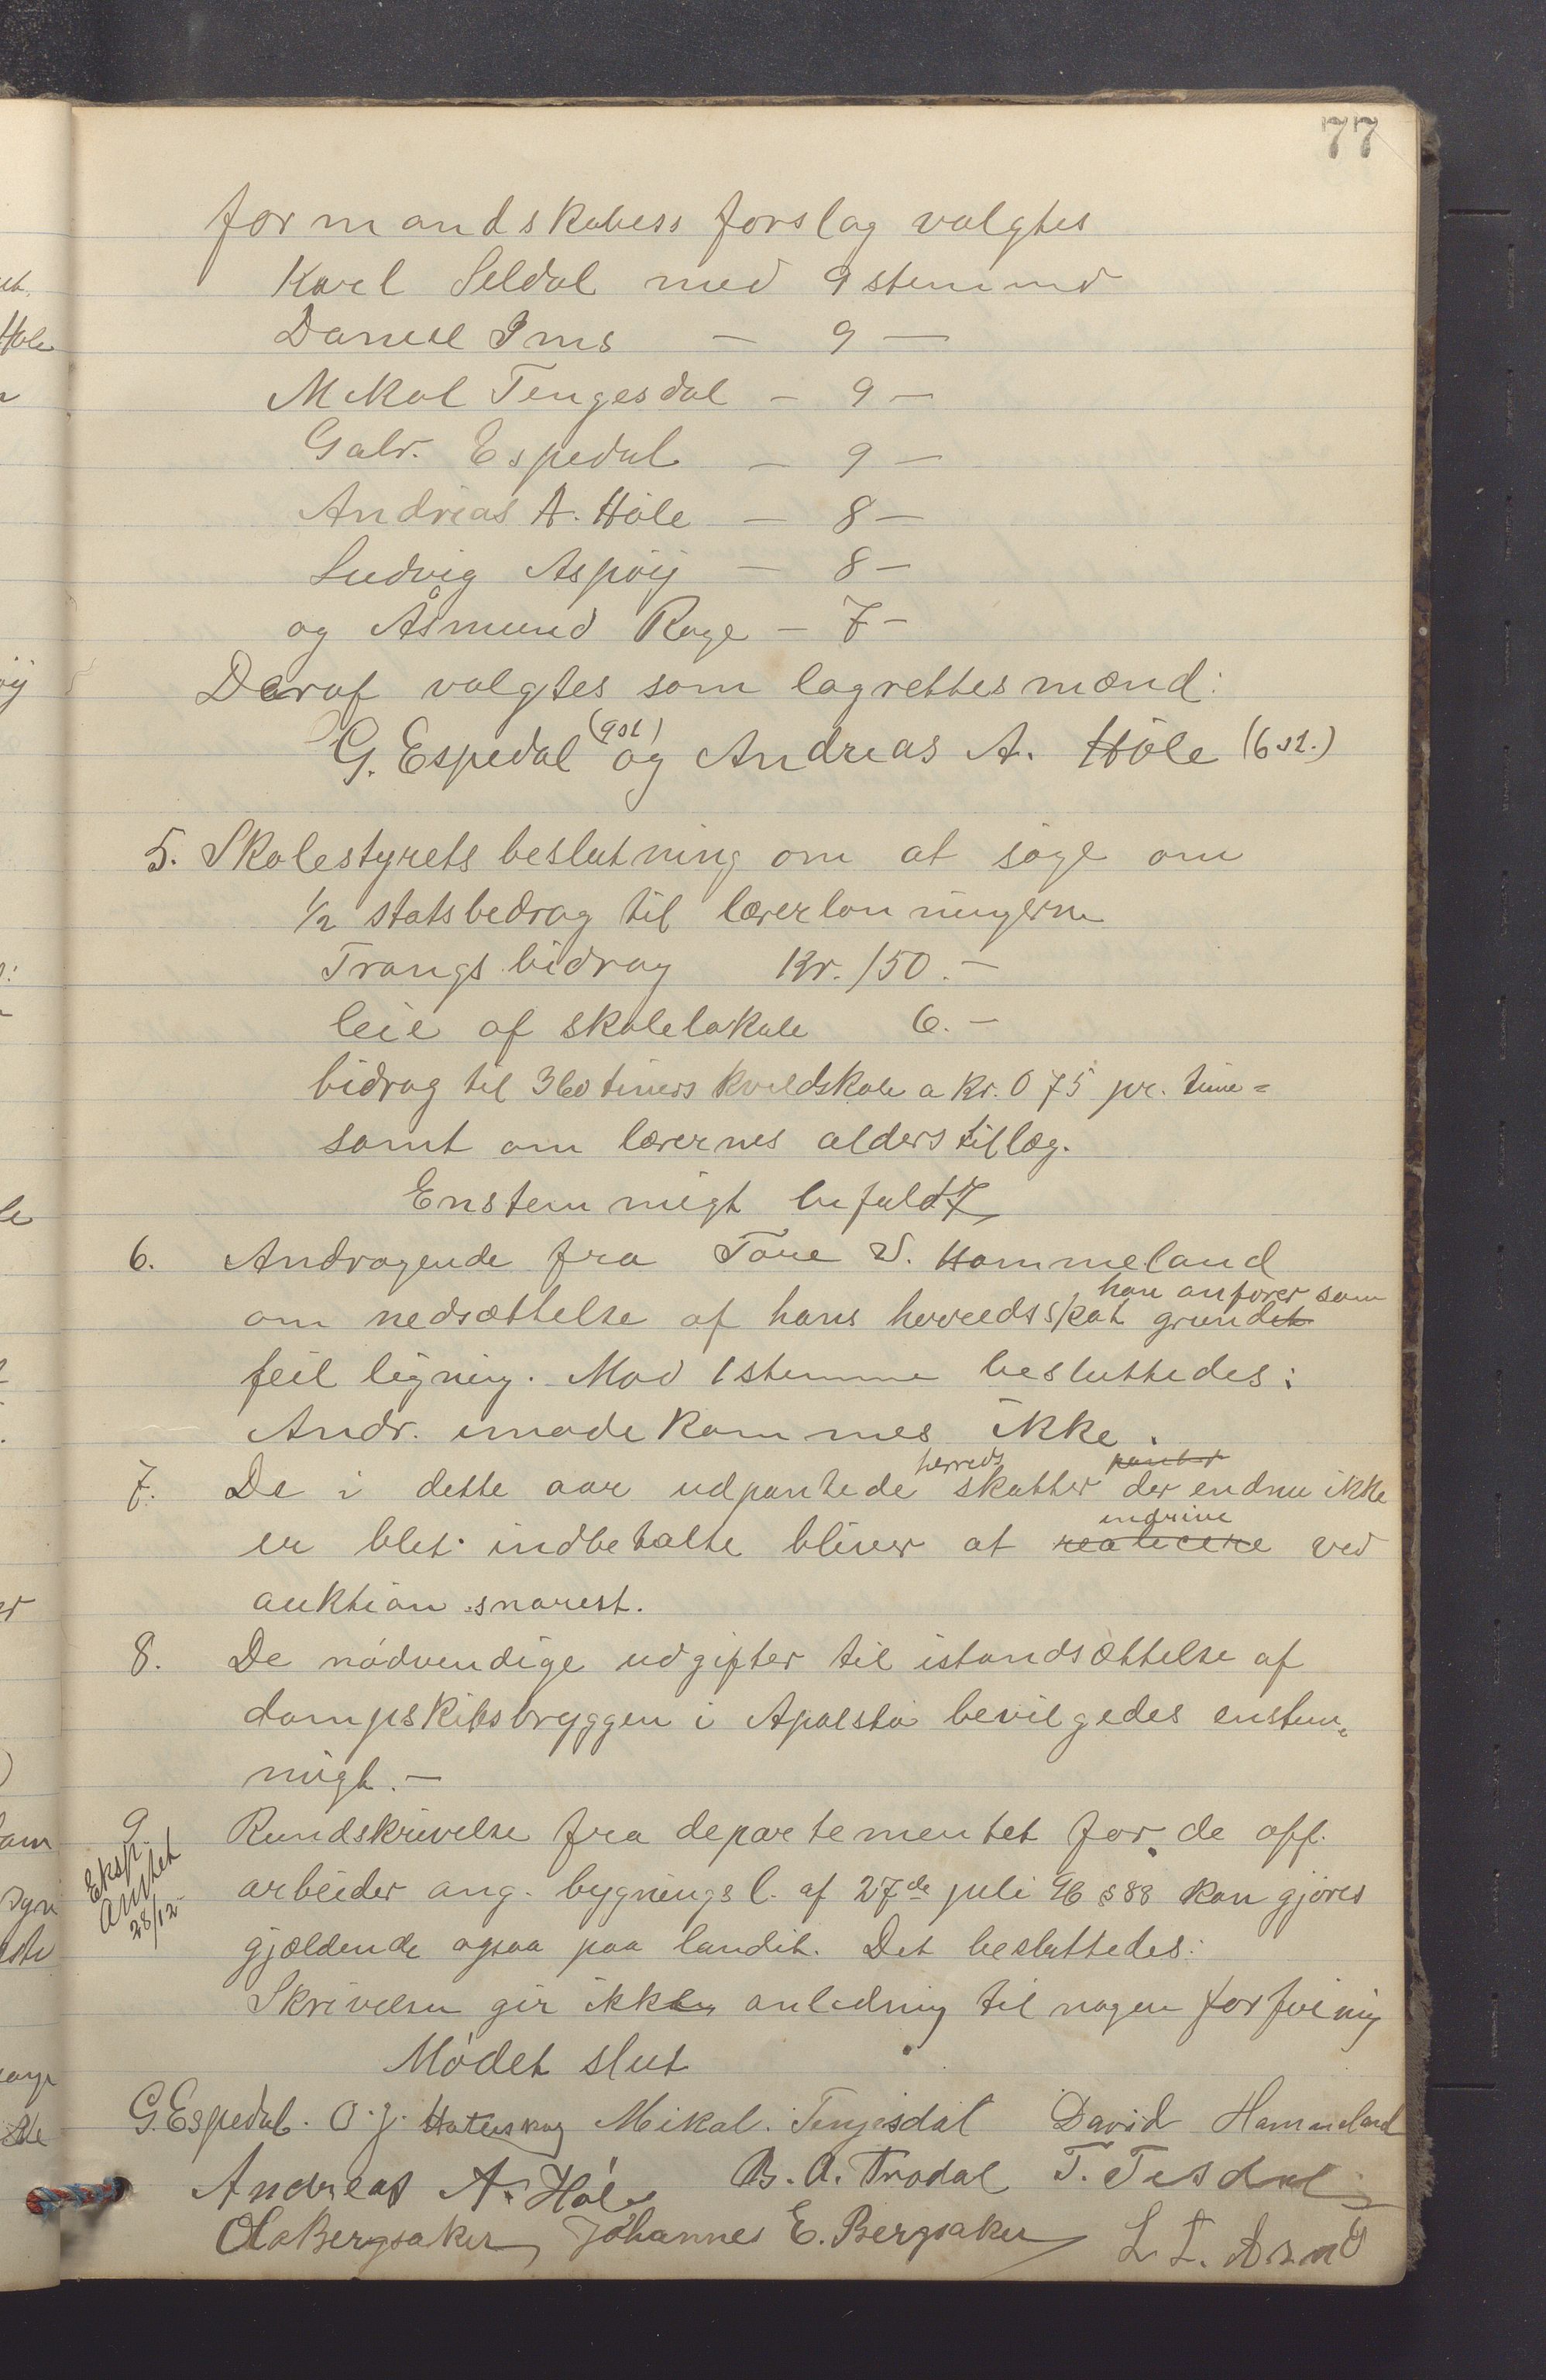 77
formandskabets forslag valgtes
Karl Seldal med 9 stemmer
Daniel Ims — 9 —
Mikal Tengesdal — 9 —
Gabr. Espedal — 9 —
Andreas A. Høle — 8 —
Ludvig Aspøij — 8 —
og Åsmund Rage — 7 —
Deraf valgtes som lagrettesmænd:
G. Espedal (9 st) og Andreas A. Høle (6 st.)
5. Skolestyrets beslutning om at søge om
1/2 statsbedrag til lærerlønningerne
Trangsbidrag Kr. 150.—
leie af skolelokale 6.—
bidrag til 360 timers kveldskole a Kr. 0 75 pr. time =
samt om lærernes alderstillæg.
Enstemmigt befaldt
6. Andragende fra Tore S. Hommeland
han anfører som
om nedsættelse af hans herredsskat grundet
feil ligning. Mod 1 stemme besluttedes:
Andr. imødekommes ikke.
herreds panter
7. De i dette aar udpantede skatter der endnu ikke
indrive
er blet indbetalte bliver at realicere ved
auktion snarest.
8. De nødvendige udgifter til istandsættelse af
dampskibsbryggen i Apalstø bevilgedes enstem=
migt.—
9 Rundskrivelse fra departementet for de off.
Eksp. Amtet 28/12
arbeider ang. bygningsl. af 27de juli 96 § 88 kan gjøres
gjældende ogsaa paa landet. Det besluttedes:
Skrivelsen gir ikke anledning til nogen forføining
Mødet slut
G. Espedal. O. J. Hatleskog Mikal. Tengesdal David Hammeland
Andreas A. Høle B. A. Trodal T. Tisdal
Ola Bergsaker, Johannes E. Bergsaker L. L.